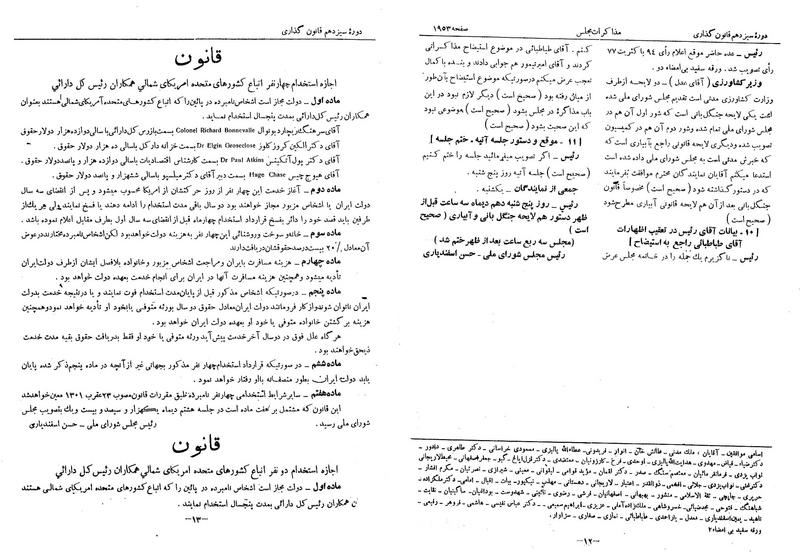 دورهٔ سیزدهم قانون گذاری
مذاکرات مجلس
صفحه ۱۹۵۳
رئیس ـ عده حاضر موقع اعلام رأی ۹۴ با کثریت ۷۷
رأی تصویب شد. ورقه سفید بی‌امضاء دو.
وزیر کشاورزی (آقای عدل) ـ دو لایحه از طرف
وزارت کشاورزی مدتی است تقدیم مجلس شورای ملی شده
است یکی لایحه جنگل‌بانی است که شور اول آن هم در
مجلس شورای ملی تمام شده وشور دوم آن هم در کمیسیون
تصویب شده ودیگری لایحه قانونی راجع به‌آبیاری است که
که خبرش مدتی است به مجلس شورای ملی داده شده است
استدعا میکنم آقایان نمایندگان محترم موافقت بفرمایند
که در دستور گذاشته شود (صحیح است) مخصوصاً قانون
جنگل‌بانی بعد از آن هم لایحه قانونی آبیاری مطرح شود
(صحیح است)
[۱۰ ـ بیانات آقای رئیس در تعقیب اظهارات
آقای طباطبائی راجع به استیضاح]
رئیس ـ ناگزیرم یک جمله را در خاتمه مجلس عرض
کنم. آقای طباطبائی در موضوع استیضاح مذاکراتی
کردند و آقای امیرتیمور هم جوابی دادند و بنده با کمال
تعجب عرض میکنم درصورتیکه موضوع استیضاح بآن‌طور
از میان رفته بود (صحیح است) دیگر لازم نبود در این
باب مذاکرهٔ در مجلس بشود (صحیح است) موضوعی نبود
که این صحبت بشود (صحیح است)
[۱۱ ـ موقع و دستور جلسه آتیه ـ ختم جلسه]
رئیس ـ اگر تصویب میفرمائید جلسه را ختم کنیم
(صحیح است) جلسه آتیه روز پنج شنبه.
جمعی از نمایندگان ـ یکشنبه.
رئیس ـ روز پنج شنبه دهم دیماه سه ساعت قبل از
ظهر دستور هم لایحه جنگل بانی و آبیاری (صحیح
است)
(مجلس سه ربع ساعت بعد از ظهر ختم شد)
رئیس مجلس شورای ملی ـ حسن اسفندیاری
ورقه سفید بی امضاء ۲
ـ۱۲ـ
دورهٔ سیزدهم قانون گذاری
قانون
اجازه استخدام چهار نفر اتباع کشورهای متحده امریکای شمالی همکاران رئیس کل دارائی
ماده اول ـ دولت مجاز است اشخاص نامبرده در پائین را که اتباع کشورهای متحده آمریکای شمالی هستند بعنوان
همکاران رئیس کل دارائی بمدت پنجسال استخدام نماید.
آقای سرهنگ ریچارد بونوال Colonel Richard Bonnevalle بسمت بازرس کل دارائی باسالی دوازده هزار دولار حقوق
آقای دکتر الگین کروزکلوز Dr Elgin Groseclose بسمت خزانه دار کل باسالی ده هزار دولار حقوق.
آقای دکتر پول آتکینس Dr Paul Atkins بسمت کارشناس اقتصادیات باسالی دوازده هزار و پانصد دولار حقوق.
آقای هیوج چیس Hugh Chase بسمت دبیر آقای دکتر میلسپو باسالی ششهزار و پانصد دولار حقوق.
ماده دوم ـ آغاز خدمت این چهار نفر از روز حرکتشان از امریکا محسوب میشود و پس از انقضای سه سال
دولت ایران یا اشخاص مزبور مجاز خواهند بود دو سال باقی مدت استخدام را ادامه دهند یا فسخ نمایند ولی هر یک از
طرفین باید قصد خود را دائر بفسخ قرارداد استخدام چهارماه قبل از انقضای سه سال اول بطرف مقابل اعلام نموده باشد.
ماده سوم ـ خانه و سوخت وروشنائی این چهار نفر به هزینه دولت خواهد بود لکن اشخاص نامبرده مختارند درعوض
آن معادل ٪۲۰ بیست درصد حقوقشان دریافت دارند
ماده چهارم ـ هزینه مسافرت بایران و مراجعت اشخاص مزبور وخانواده بلافصل ایشان از طرف دولت ایران
تأدیه میشود وهمچنین هزینه مسافرت آنها در ایران برای انجام خدمت بعهده دولت خواهد بود.
ماده پنجم ـ درصورتیکه اشخاص مذکور قبل از پایان مدت استخدام فوت نمایند و یا درنتیجه خدمت بدولت
ایران ناتوان شوند واز کار فرومانند دولت ایران معادل حقوق دو سال بورثه متوفی یا بخود او تأدیه خواهد نمود وهمچنین
هزینه برگشتن خانواده متوفی یا خود او بعهده دولت ایران خواهد بود.
هرگاه علل فوق در دو سال آخر خدمت پیش آید ورثه متوفی یا خود او فقط بدریافت حقوق بقیه مدت خدمت
ذیحق خواهند بود.
ماده ششم ـ در صورتیکه قرارداد استخدام چهار نفر مذکور بجهاتی غیر از آنچه در ماده پنجم ذکر شده پایان
یابد دولت ایران بطور منصفانه با او رفتار خواهد نمود.
ماده هفتم ـ سایر شرایط استخدامی چهار نفر نامبرده طبق مقررات قانون مصوب ۲۳ عقرب ۱۳۰۱ معین خواهد شد
این قانون که مشتمل بر هفت ماده است در جلسه هشتم دیماه یکهزار و سیصد و بیست و یک بتصویب مجلس
شورای ملی رسید.
رئیس مجلس شورای ملی ـ حسن اسفندیاری
قانون
اجازه استخدام دو نفر اتباع کشورهای متحده امریکای شمالی همکاران رئیس کل دارائی
ماده اول ـ دولت مجاز است اشخاص نامبرده در پائین را که اتباع کشورهای متحده امریکای شمالی هستند
همکاران رئیس کل دارائی بمدت پنجسال استخدام نماید.
ـ۱۳ـ